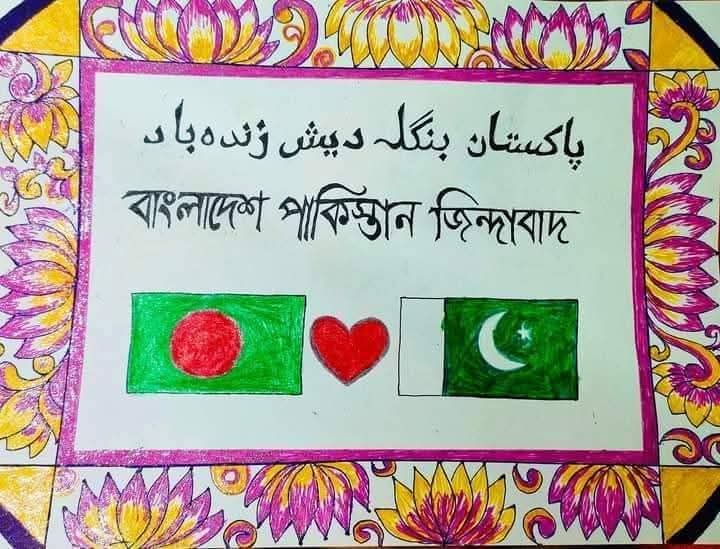 پاکستان بنگلہ دیش زندہ باد
বাংলাদেশ পাকিস্তান জিন্দাবাদ